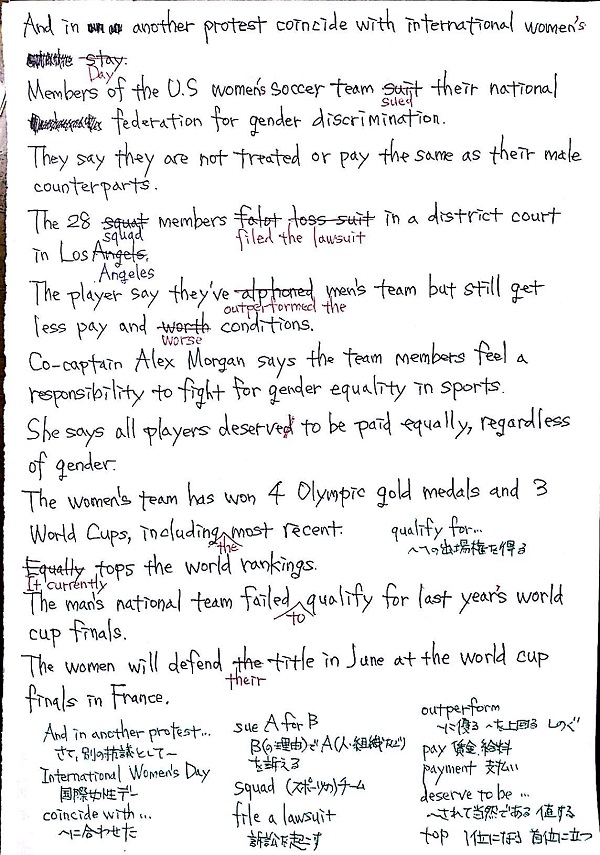 And in another protest coincide with international women's
stay.
Day
Members of the U.S women's soccer team suit their national
sued
federation for gender discrimination.
They say they are not treated or pay the same as their male
counterparts.
The 28 squat members falot loss suit in a district court
squad filed the lawsuit
in Los Angels.
Angeles
The player say they've alphoned men's team but still get
outperformed the
less pay and worth conditions.
worse
Co-captain Alex Morgan says the team members feel a
responsibility to fight for gender equality in sports.
She says all players deserved to be paid equally, regardless
of gender.
The women's team has won 4 Olympic gold medals and 3
World Cups, including most recent.
the
qualify for...
〜への出場権を得る
Equally tops the world rankings.
It currently
The man's national team failed qualify for last year's world
to
cup finals.
The women will defend the title in June at the world cup
their
finals in France.
And in another protest...
さて、別の抗議として〜
International Women's Day
国際女性デー
coincide with...
〜に合わせた
sue A for B
B(の理由)でA(人・組織など)
を訴える
squad (スポーツの)チーム
file a lawsuit
訴訟を起こす
outperform
〜に優る 〜を上回る しのぐ
pay 賃金、給料
payment 支払い
deserve to be ...
〜されて当然である 値する
top 1位になる 首位に立つ